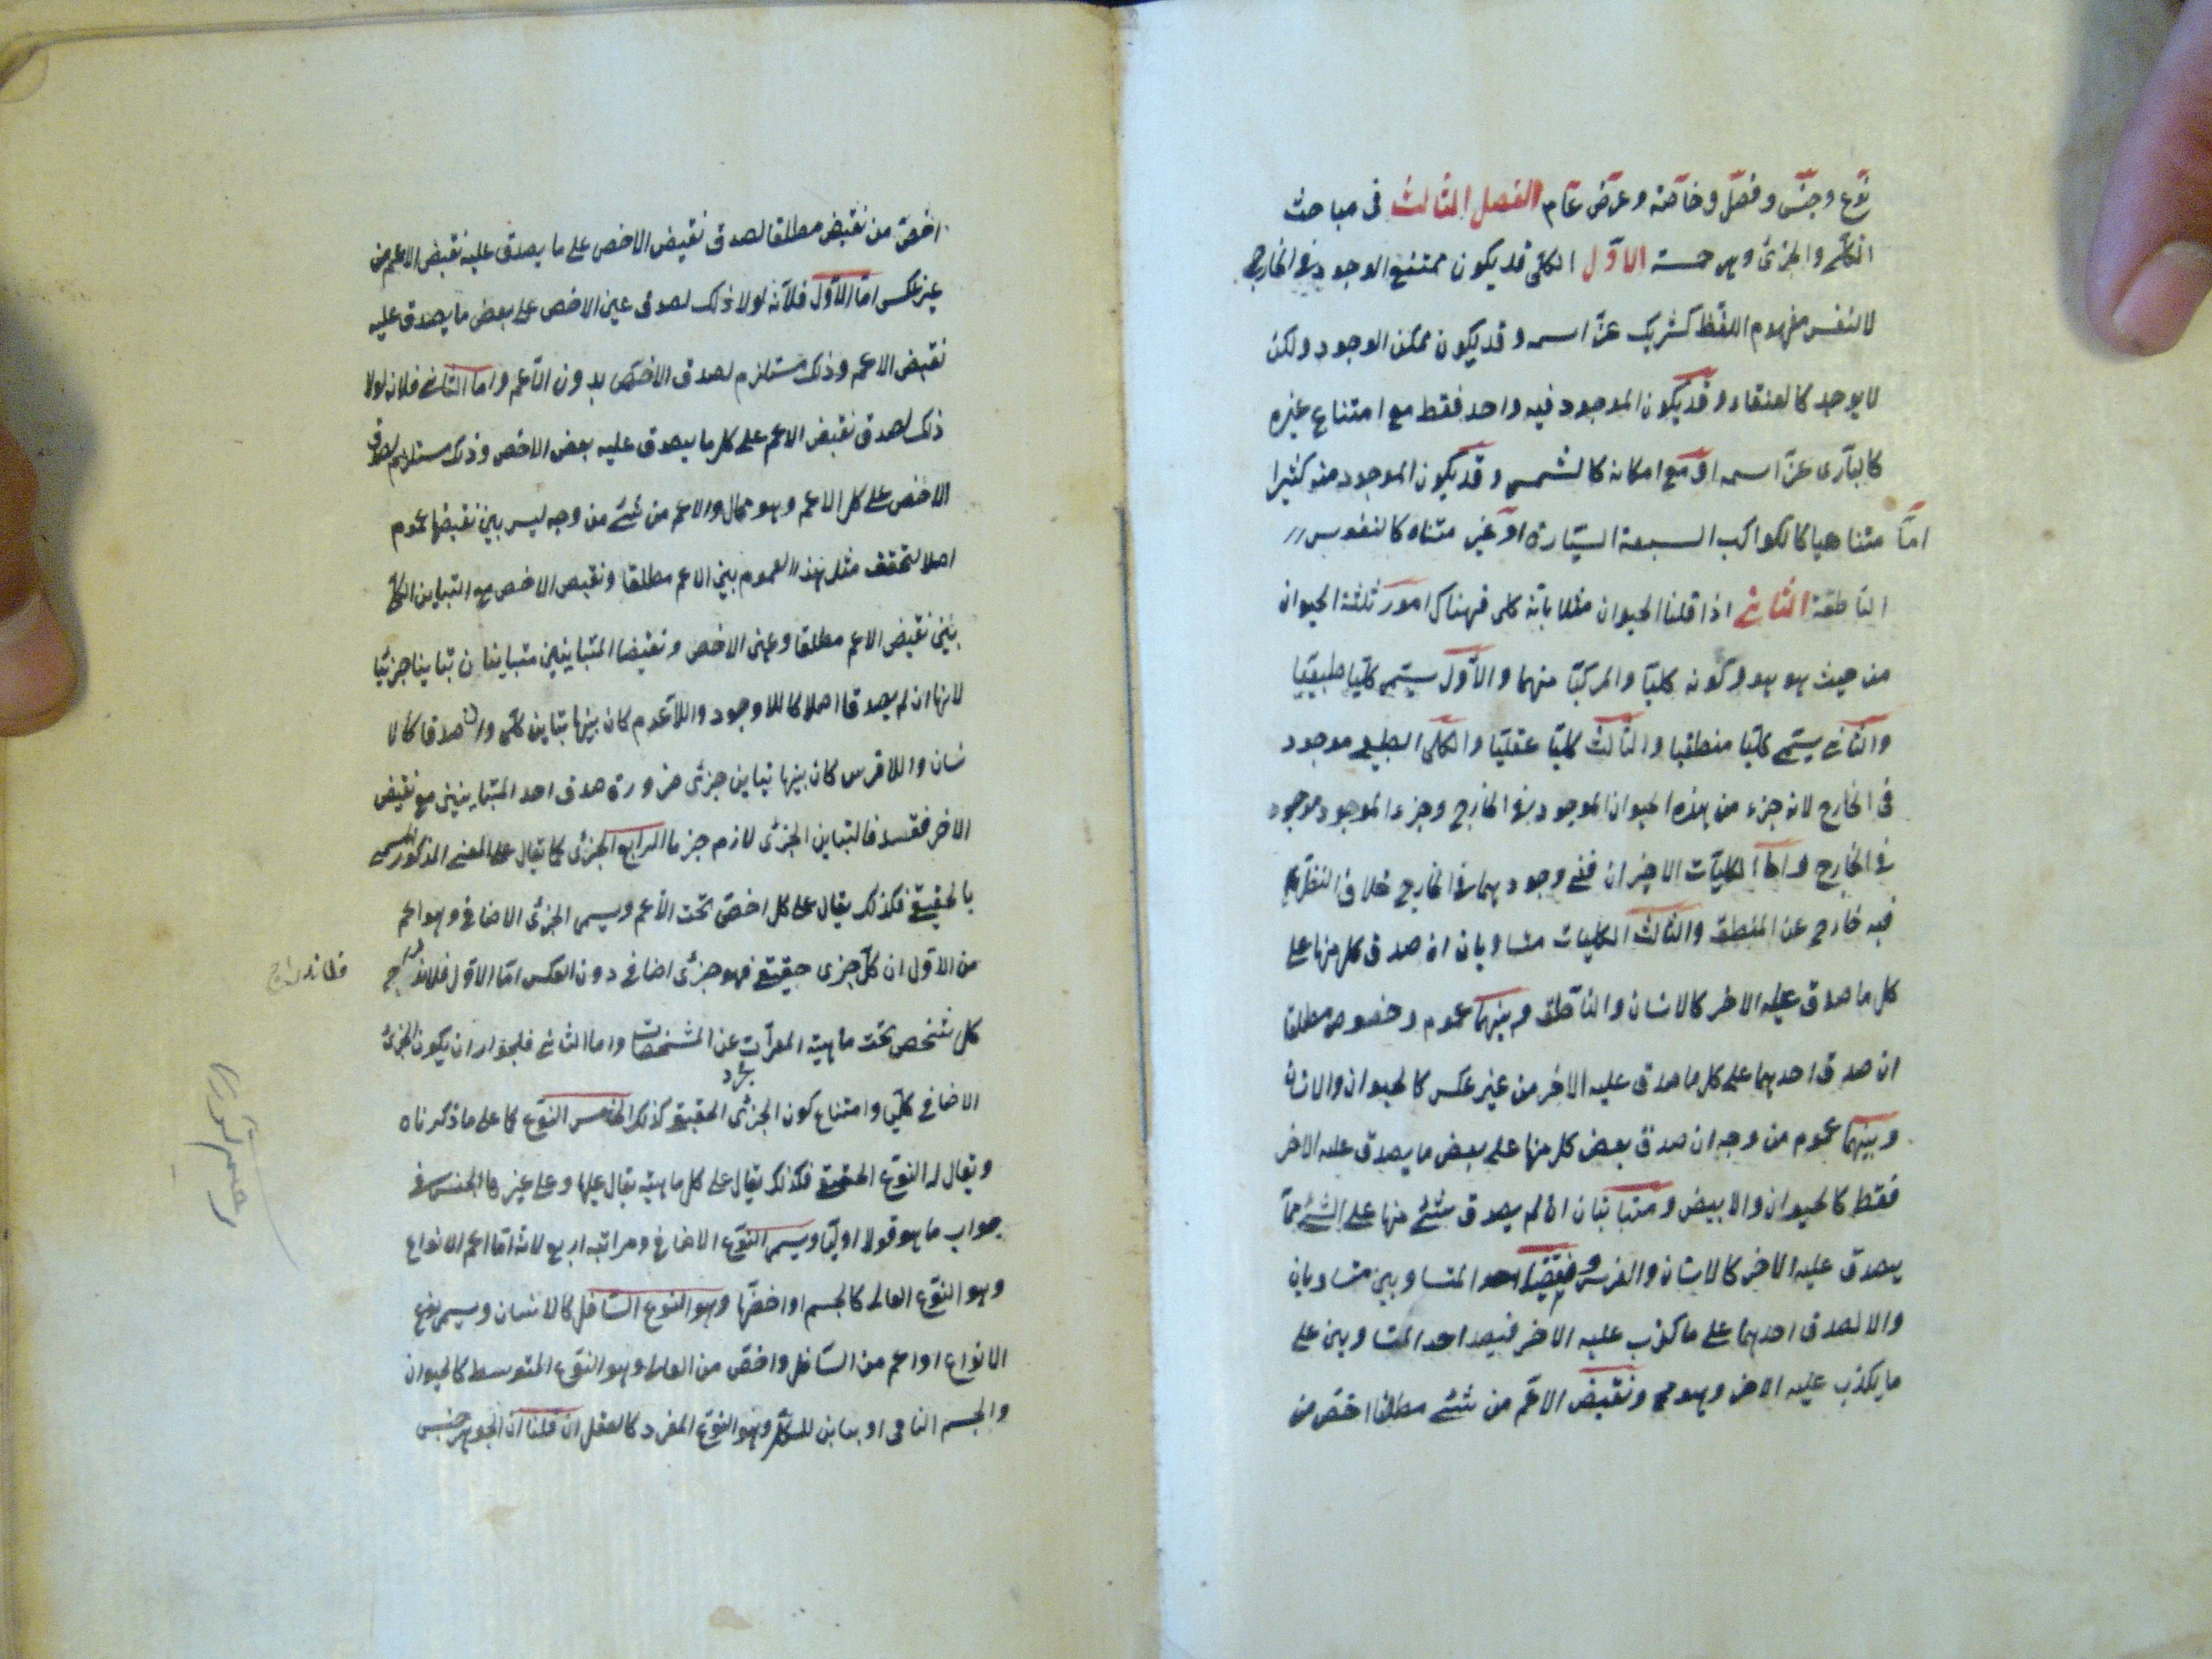 نوع وجنس وفصل وخاصة وعرض عام الفصل الثالث فى مباحث
الكلى والجزئى وهى خمسة الاول الكلى قد يكون ممتنع الوجود فى الخارج
لا لنفس مفهوم اللفظ كشريك عز اسمه وقد يكون ممكن الوجود ولكن
لا يوجد كالعنقاء وقد يكون الموجود فيه واحد فقط مع امتناع غيره
كالبارى عز اسمه او مع امكانه كالشمس وقد يكون الموجود منه كثيرا
اما متناهيا كالكواكب السبعة السيارة او غير متناه كالنفوس
الناطقة الثانى اذا قلنا الحيوان مثلا بانه كلى فهناك امور ثلثة الحيوان
من حيث هو هو وكونه كليا والمركب منهما والاول يسمى كليا طبيعيا
والثانى يسمى كليا منطقيا والثالث كليا عقليا والكلى الطبيعى موجود
فى الخارج لانه جزء من هذه الحيوان الموجود فى الخارج وجزء الموجود موجود
فى الخارج واما الكليات الاخيران ففى وجودهما فى الخارج خلاف النظر
فيه خارج عن المنطق والثالث الكليات متساويان ان صدق كل منها على
كل ما صدق عليه الاخر كالانسان والناطق وبينهما عموم وخصوص مطلقا
ان صدق احدهما على كل ما صدق عليه الاخر من غير عكس كالحيوان والانسان
وبينهما عموم من وجه ان صدق بعض كل منها على بعض ما يصدق عليه الاخر
فقط كالحيوان والابيض ومتباينان ان لم يصدق شئ منها على الشئ مما
يصدق عليه الاخر كالانسان والفرس ونقيضا المتساويين متساويان
والا لصدق احدهما على ما كذب عليه الاخر فيصد احد المتساويين على
ما يكذب عليه الاخر وهو مح ونقيض الاعم من شئ مطلقا اخص من
اخص من نقيض مطلقا لصدق نقيض الاخص على ما يصدق عليه نقيض الاعم من
غير عكس اما الاول فلانه لولا ذلك لصدق عين الاخص على بعض ما يصدق عليه
نقيض الاعم وذلك مستلزم لصدق الاخص بدون الاعم واما الثانى فلانه لولا
ذلك لصدق نقيض الاعم على كل ما يصدق عليه بعض الاخص وذلك مستلزم لصدق
الاخص على كل الاعم وهو محال والاعم من شئ من وجه ليس بين نقيضها عموم
اصلا لتحقق مثل هذا العموم بين الاعم مطلقا ونقيض الاخص مع التباين الكلى
بين نقيض الاعم مطلقا وعين الاخص ونقيضا المتباينين متباينان تباينا جزئيا
لانهما ان لم يصدقا اصلا كاللاوجود واللاعدم كان بينها تباين كلى وان صدقا كالا
نسان واللافرس كان بينها تباين جزئى ضرورة صدق احد المتباينين مع نقيض
الاخر فقط فالتباين الجزئى لازم جزما الرابع الجزئى كما يقال على المعنى المذكور المسمى
بالحقيقى فكذلك يقال على كل اخص تحت الاعم ويسمى الجزئى الاضافى وهو اعم
من الاول ان كل جزى حقيقى فهو جزئى اضافى دون العكس اما الاول فلاندراج
فلاندراج
كل شخص تحت ماهيته المعرات عن المشخصات واما الثانى فلجواز ان يكون الجزئى
الاضافى كليا وامتناع كون الجزئى الحقيقى كذلك الخامس النوع كما على ما ذكرناه
ويقال له النوع الحقيقى فكذلك يقال على كل ماهية يقال عليها وعلى غيرها الجنس فى
جواب ما هو قولا اوليا ويسمى النوع الاضافى ومراتبه اربع لانه اما اعم الانواع
وهو النوع العالى كالجسم او اخصها وهو النوع السافل كالانسان ويسمى نوع
الانواع او اعم من السافل واخص من العالى وهو النوع المتوسط كالحيوان
والجسم النامى او مباين للكل وهو النوع المفرد كالعقل ان قلنا ان الجوهر جنس